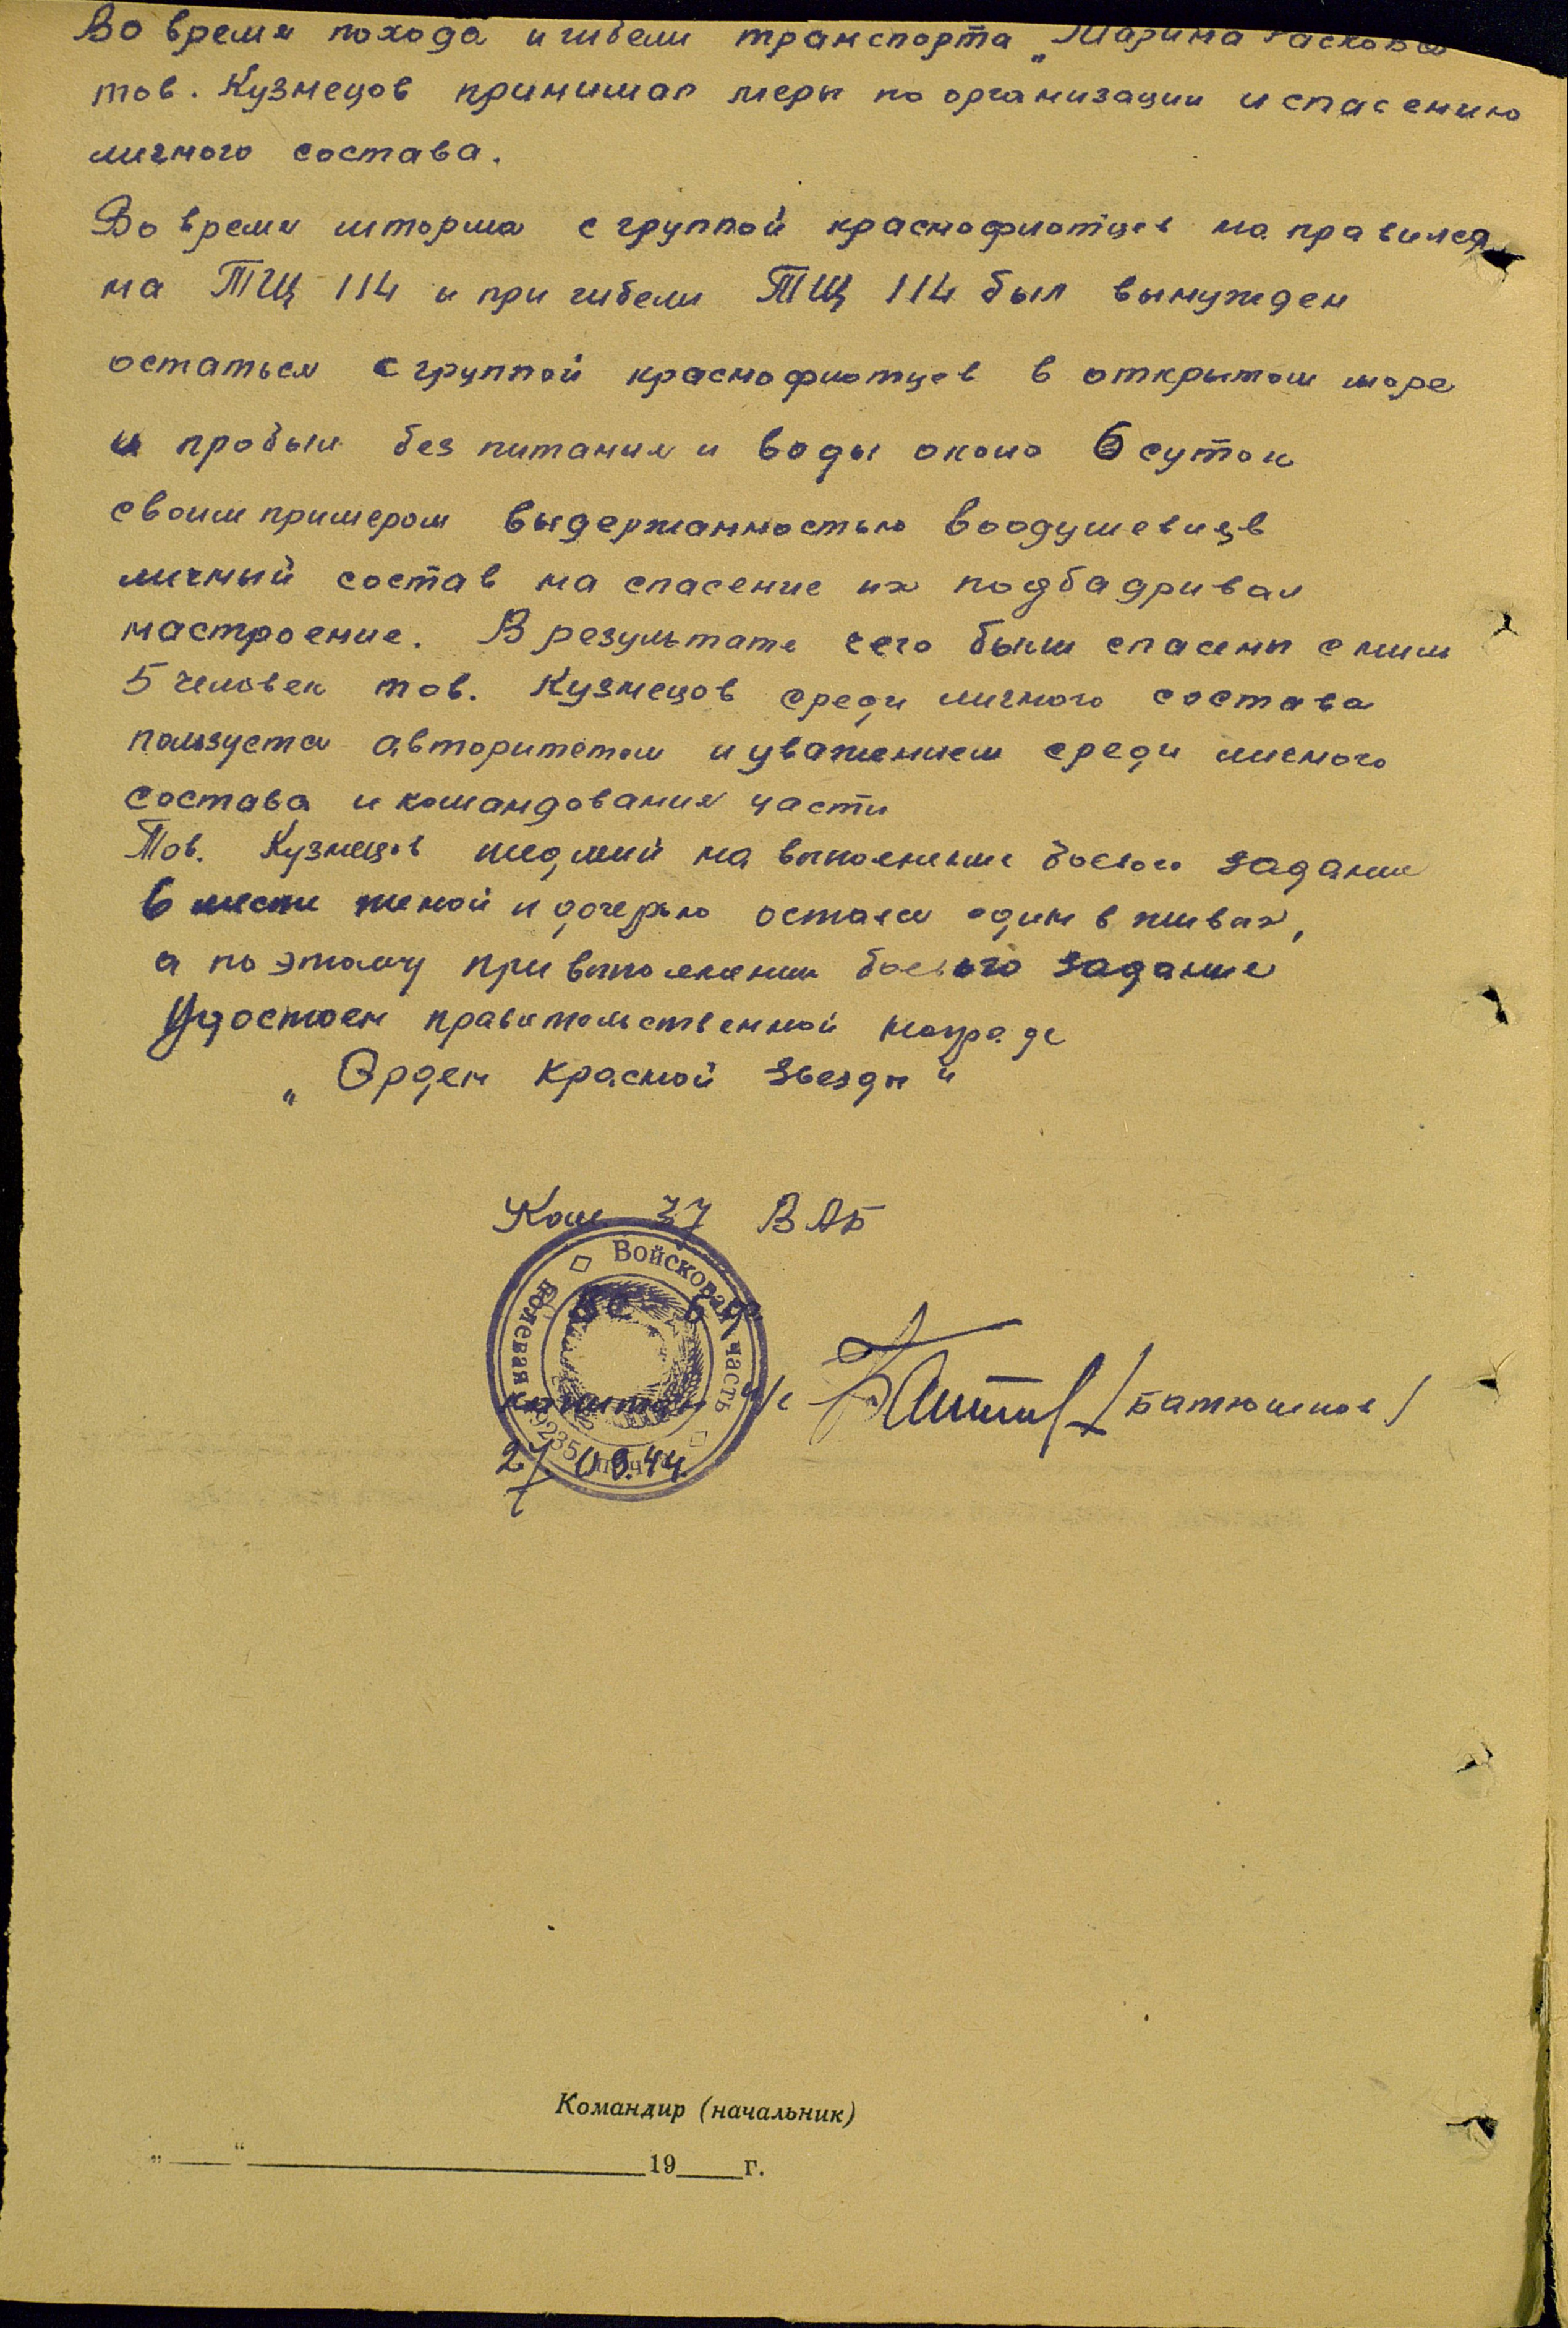 Во время похода и гибели транспорта „Марина Раскова
тов. Кузнецов принимал меры по организации и спасению
личного состава.
Во время шторма с группой краснофлотцев на правился
на ТЩ 114 и при гибели ТЩ 114 был вынужден
остаться с группой краснофлотцев в открытом море
и пробыл без питания и воды около 6 суток
своим примером выдержанностью воодушевляв
личный состав на спасение их подбадривал
настроение. В результате чего были спасены с ним
5 человек тов. Кузнецов среди личного состава
пользуется авторитетом и уважением среди личного
состава и командования части
Тов. Кузнецов шедший на выполнение боевого задания
в месте женой и дочерью остался один в живых,
а по этому при выполнении боевого задания
Удостоен правительственной награде
„Орден Красной Звезды“
Ком 37 ВАБ
Войсковая часть
полевая почта
капитан и/с (Батюшков)
27 09.44.
Командир (начальник)
„ “ 19 г.